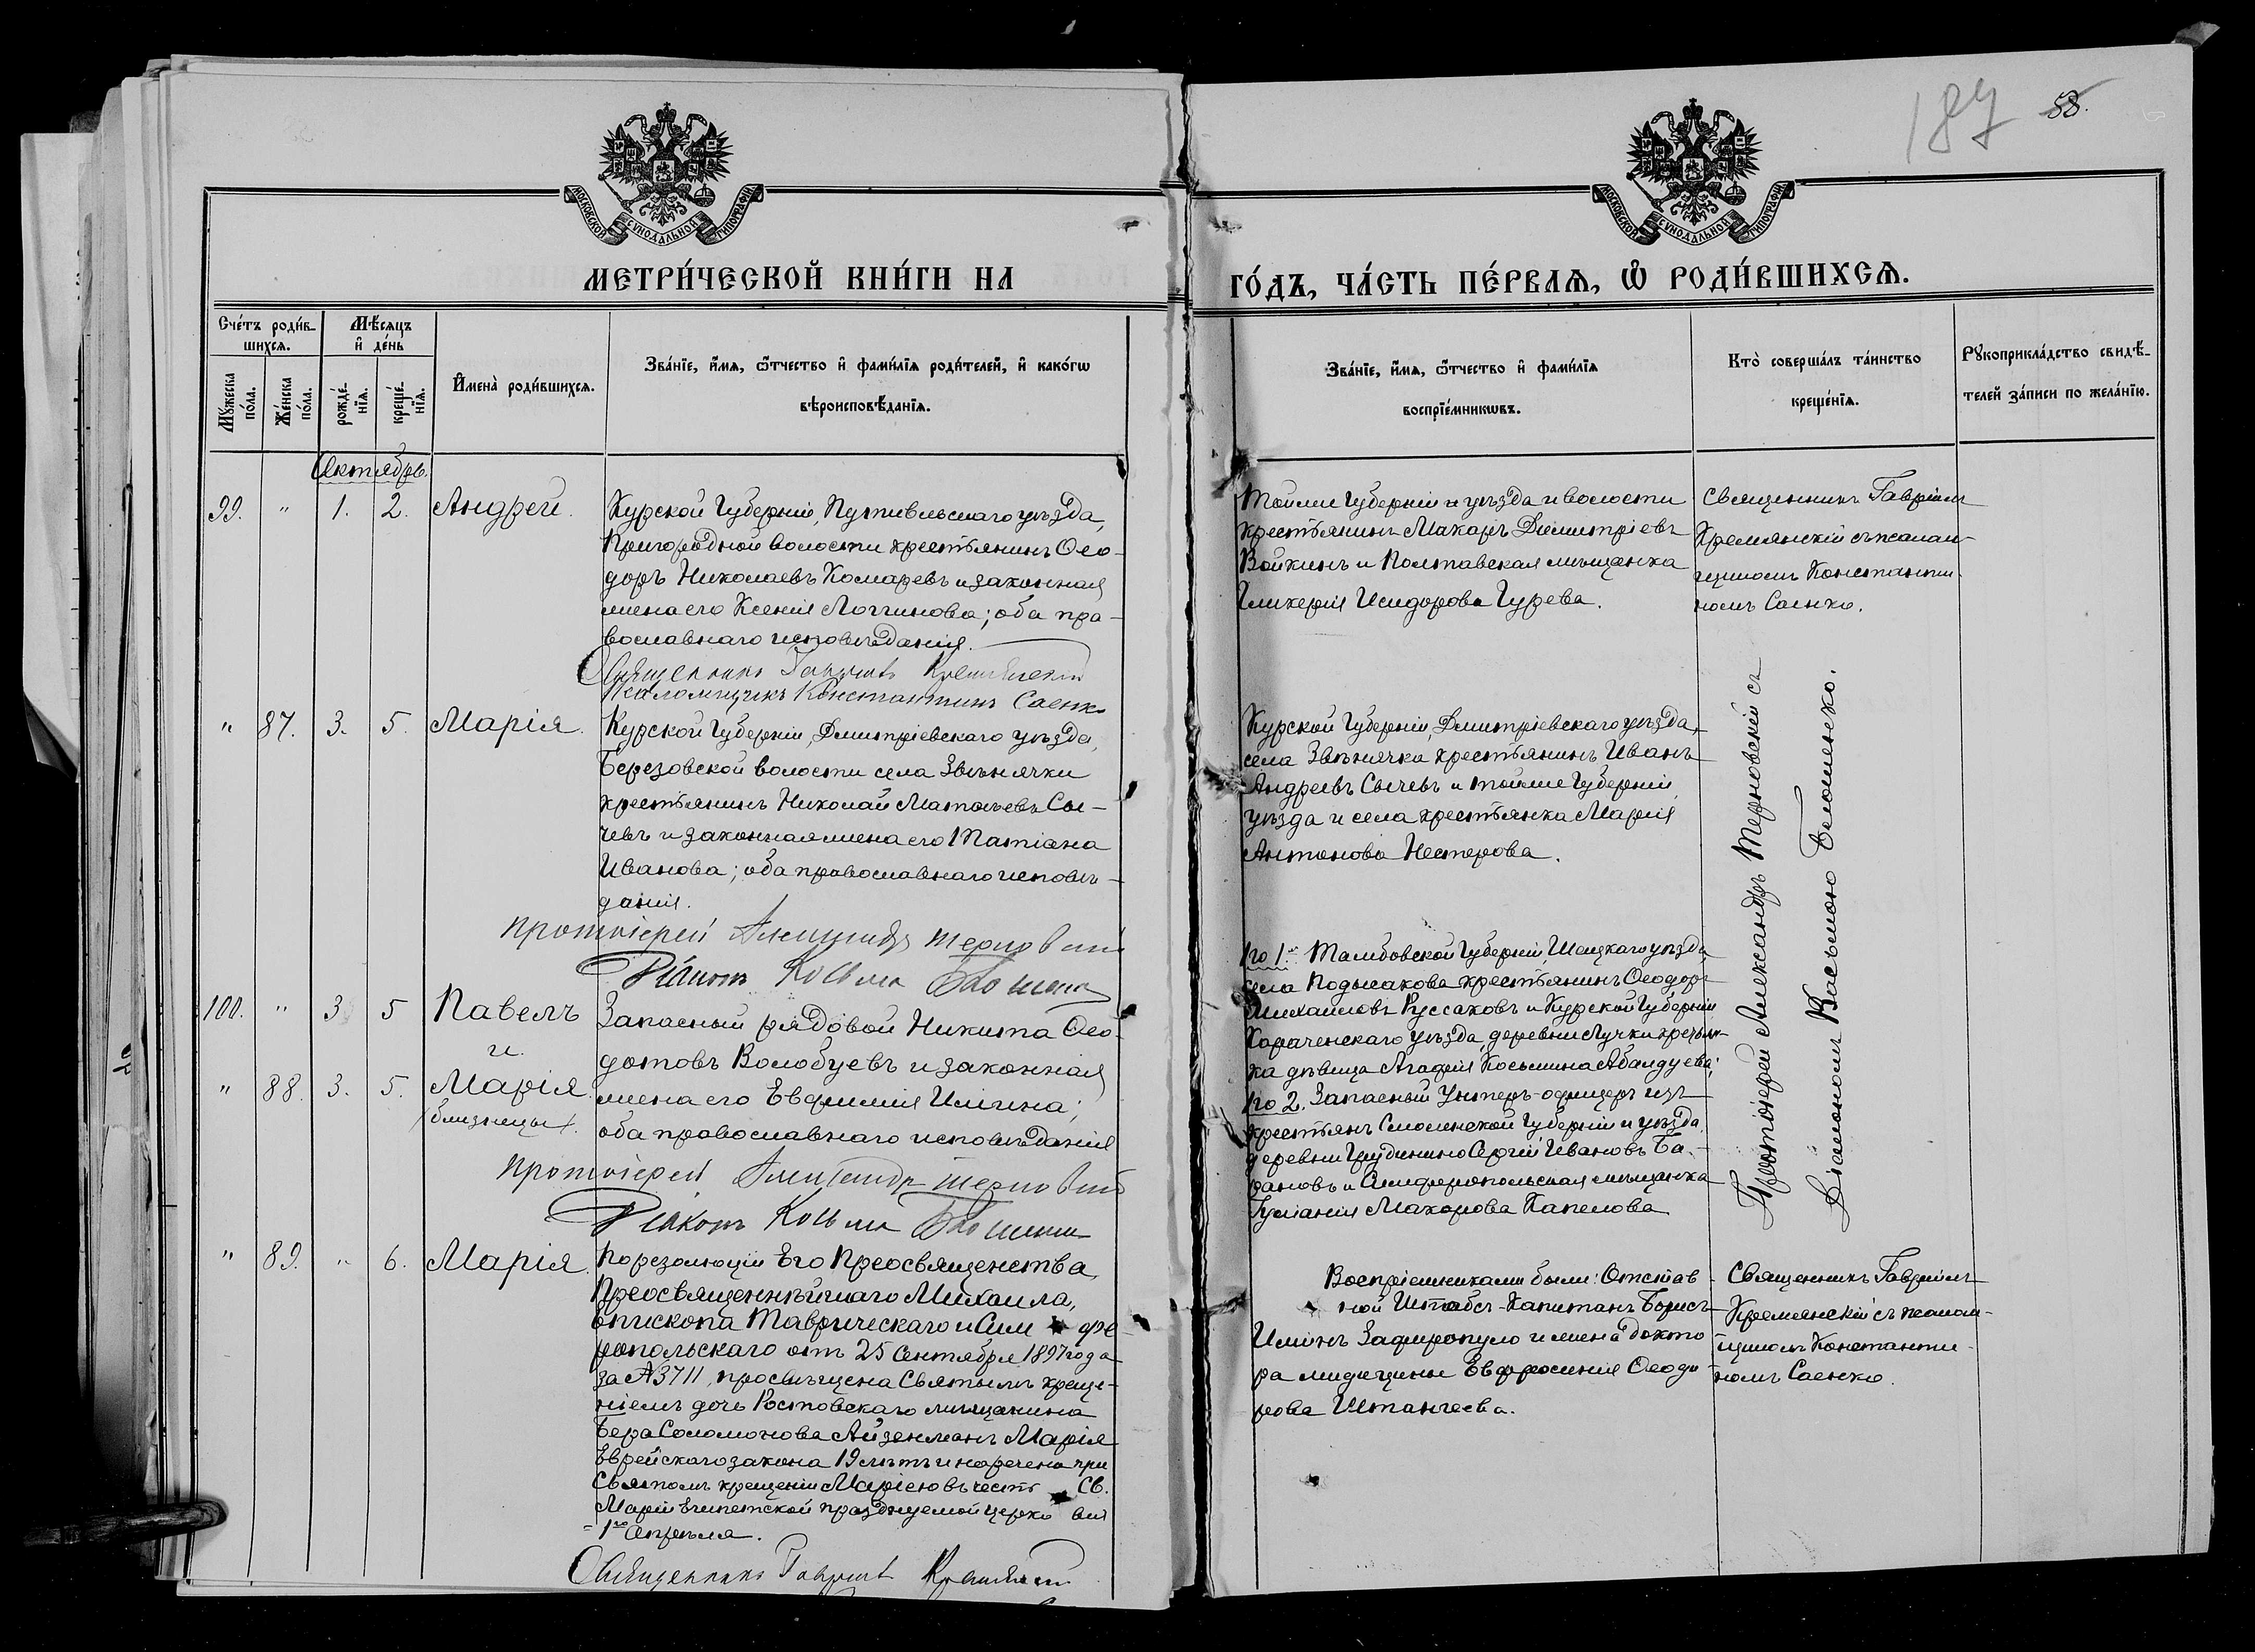 187 58.
МОСКОВСКОЙ СѴНОДАЛЬНОЙ ТИПОГРАФІИ
МОСКОВСКОЙ СѴНОДАЛЬНОЙ ТИПОГРАФІИ
МЕТРИ́ЧЕСКОЙ КНИ́ГИ НА
ГО́ДЪ, ЧА́СТЬ ПЕ́РВАЯ, Ѿ РОДИ́ВШИХСЯ.
Сче́тъ роди́в-
шихся.
Мѣ́сяцъ
и де́нь
Мꙋ́жеска
по́ла.
Же́нска
по́ла.
рожде́-
нїя.
креще́-
нїя.
Имена̀ роди́вшихся.
Зва́нїе, и́мя, ѻ́тчество и фами́лїя роди́телей, и како́гѡ
вѣроисповѣ́данїя.
Зва́нїе, и́мя, ѻ́тчество и фами́лїя
воспрїе́мникѡвъ.
Кто̀ соверша́лъ та́инство
креще́нїя.
Рꙋкоприкла́дство свидѣ́-
телей за́писи по жела́нїю.
Октябрь.
99. " 1. 2. Андрей.
Курской Губерніи, Путивльскаго уѣзда,
Пригородной волости крестьянинъ Ѳео-
доръ Николаевъ Комаревъ и законная
жена его Ксенія Логгинова; оба пра-
вославнаго исповѣданія.
Священникъ Гавріилъ Кремянскій
Псаломщикъ Константинъ Саенко
Тойже Губерніи и уѣзда и волости
крестьянинъ Макаръ Димитріевъ
Войкинъ и Полтавская мѣщанка
Гликерія Исидорова Гурева.
Священникъ Гавріилъ
Кремянскій съ псалом-
щикомъ Константи-
номъ Саенко.
" 87. 3. 5. Марія.
Курской Губерніи, Дмитріевскаго уѣзда,
Березовской волости села Звѣнячки
крестьянинъ Николай Матвѣевъ Сы-
чевъ и законная жена его Татіана
Иванова; оба православнаго исповѣ-
данія.
Протоіерей Александръ Терновскій
Діаконъ Косьма
Курской Губерніи, Дмитріевскаго уѣзда,
села Звѣнячки крестьянинъ Иванъ
Андреевъ Сычевъ и тойже Губерніи,
уѣзда и села крестьянка Марія
Антонова Нестерова.
Протоіерей Александръ Терновскій съ
Діакономъ Косьмою Белошенко.
100. " 3 5 Павелъ
и
" 88. 3. 5. Марія.
/близнецы/.
Запасный рядовой Никита Ѳео-
дотовъ Волобуевъ и законная
жена его Евфимія Ильина;
оба православнаго исповѣданія
Протоіерей Александръ Терновскій
Діаконъ Косьма
1го 1. Тамбовской Губерніи, Шацкаго уѣзда,
села крестьянинъ Ѳеодоръ
Михайловъ Руссаковъ и Курской Губерніи
уѣзда, деревни Лучки крестьян-
ка дѣвица Агафія Косьмина Абалдуева;
2. Запасный Унтеръ-офицеръ изъ
крестьянъ Смоленской Губерніи и уѣзда,
деревни Грудинино Сергій Ивановъ Ба-
дановъ и Симферопольская мѣщанка
Іуліанія Макарова Капелова
" 89. " 6. Марія.
По резолюціи Его Преосвященства,
Преосвященнѣйшаго Михаила,
Епископа Таврическаго и Сим фе-
ропольскаго отъ 25 Сентября 1897 года
за № 3711, просвѣщена Святымъ креще-
ніемъ дочь Ростовскаго мѣщанина
Бера Соломонова Айзенманъ Марія
Еврейскаго закона 19 лѣтъ и наречена при
Святомъ крещеніи Маріею въ честь Св.
Маріи Египетской празднуемой церко вію
1го Апрѣля.
Священникъ Гавріилъ Кремянскій
Воспріемниками были: Отстав-
ной Штабсъ-Капитанъ Борисъ
Ильинъ Зафиропуло и жена докто
ра медицины Евфросинія Ѳеодо-
рова Штангеева.
Священникъ Гавріилъ
Кремянскій съ псалом-
щикомъ Константи-
номъ Саенко.